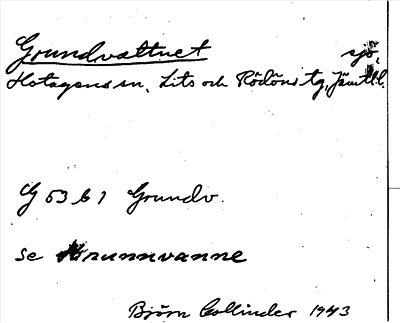 Grundvattnet sjö,
Hotagens sn, Lits och Rödöns tg, Jämtl. l.
G 53 b 1 Grundv.
se Brunnvanne
Björn Collinder 1943